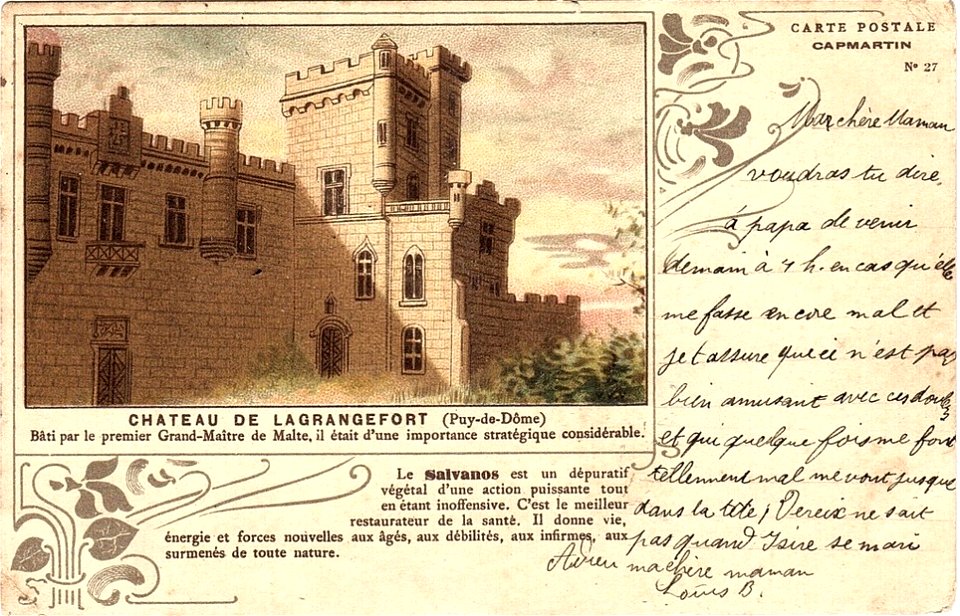 CARTE POSTALE
CAPMARTIN
Nº 27
CHATEAU DE LAGRANGEFORT (Puy-de-Dôme)
Bâti par le premier Grand-Maître de Malte, il était d'une importance stratégique considérable.
Le Salvanos est un dépuratif
végétal d'une action puissante tout
en étant inoffensive. C'est le meilleur
restaurateur de la santé. Il donne vie,
énergie et forces nouvelles aux âgés, aux débilités, aux infirmes, aux
surmenés de toute nature.
Ma chère Maman
voudras tu dire
à papa de venir
demain à 4 h. en cas qu'elle
me fasse encore mal et
je t assure que ce n'est pas
bien amusant avec ces
et qui quelque fois me font
tellement mal me vont jusque
dans la tête, ne sait
pas quand se mari
Adieu ma chère maman
Louis B.